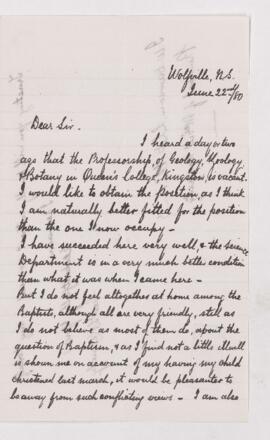 Wolfville, N.S.
June 22nd/80
Dear Sir.
I heard a day or two
ago that the Professorship, of Geology, Zoology,
& Botany in Queen's College, Kingston, is vacant.
I would like to obtain the position, as I think
I am naturally better fitted for the position
than the one I now occupy -
I have succeeded here very well, & the science
Department is in a very much better condition
than what it was when I came here -
But I do not feel altogether at home among the
Baptists, although all are very friendly, still as
I do not believe as most of them do, about the
question of Baptism, & as I find not a little illwill
is shown me on account of my having my child
christened last March, it would be pleasanter to
be away from such conflicting views - I am also